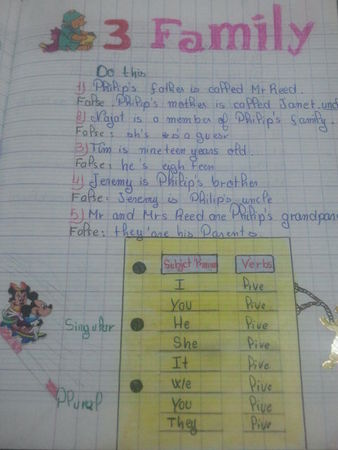 3 Family
Do this
1) Philip's father is called Mr Reed.
False. Philip's mother is called Janet.
2) Najat is a member of Philip's family.
False: sh's is a guest
3) Tim is nineteen years old.
False: he's eigh teen
4) Jeremy is Philip's brother
False: Jeremy is Philip's uncle
5) Mr and Mrs Reed are Philip's grandparen
False: they're his Parents.
Subject Verbs
I live
You live
Singular He live
She live
It live
We live
Plural You live
They live